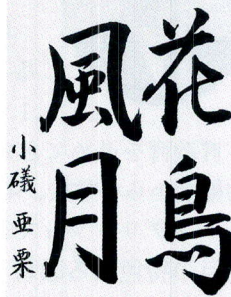 花鳥
風月
小磯亜栗